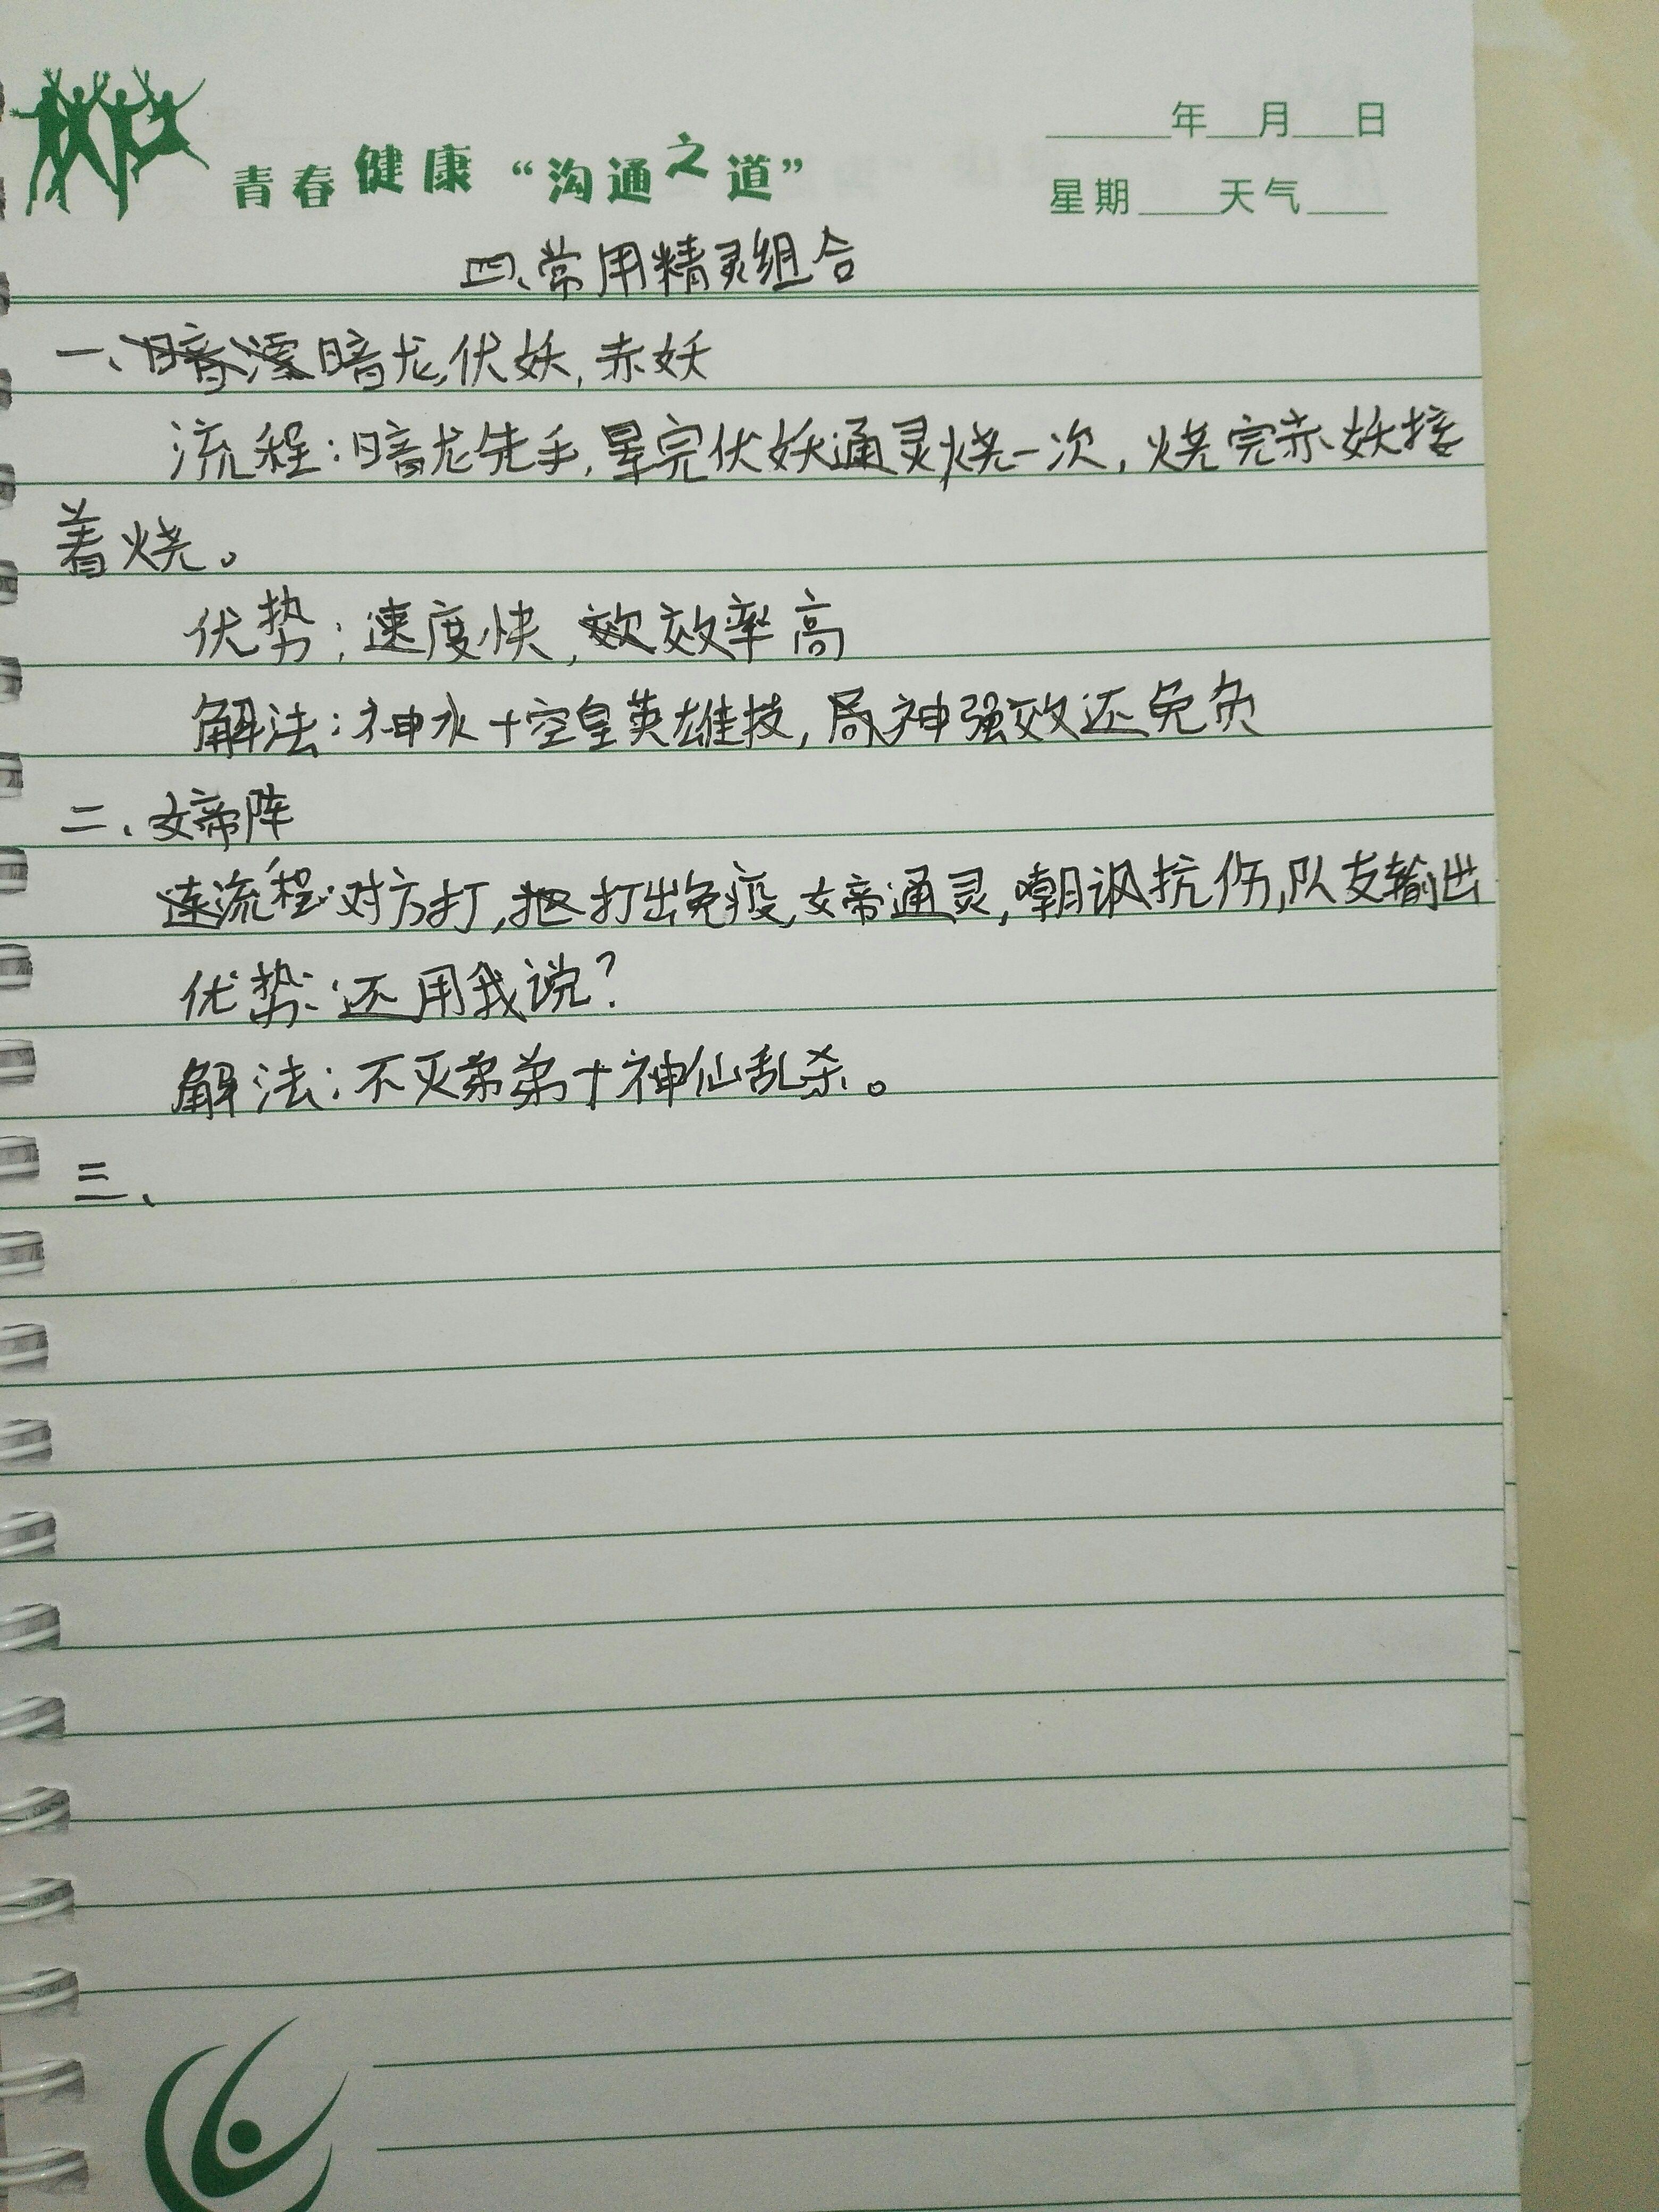 年 月 日
青春健康“沟通之道”
星期 天气
四、常用精灵组合
一、暗龙,伏妖,赤妖
流程:暗龙先手,晕完伏妖通灵烧一次,烧完赤妖接
着烧。
优势:速度快,效率高
解法:神水+空皇英雄技,局神强效还免负
二、女帝阵
流程:对方打,打出免疫,女帝通灵,嘲讽抗伤,队友输出
优势:还用我说?
解法:不灭弟弟+神仙乱杀。
三、